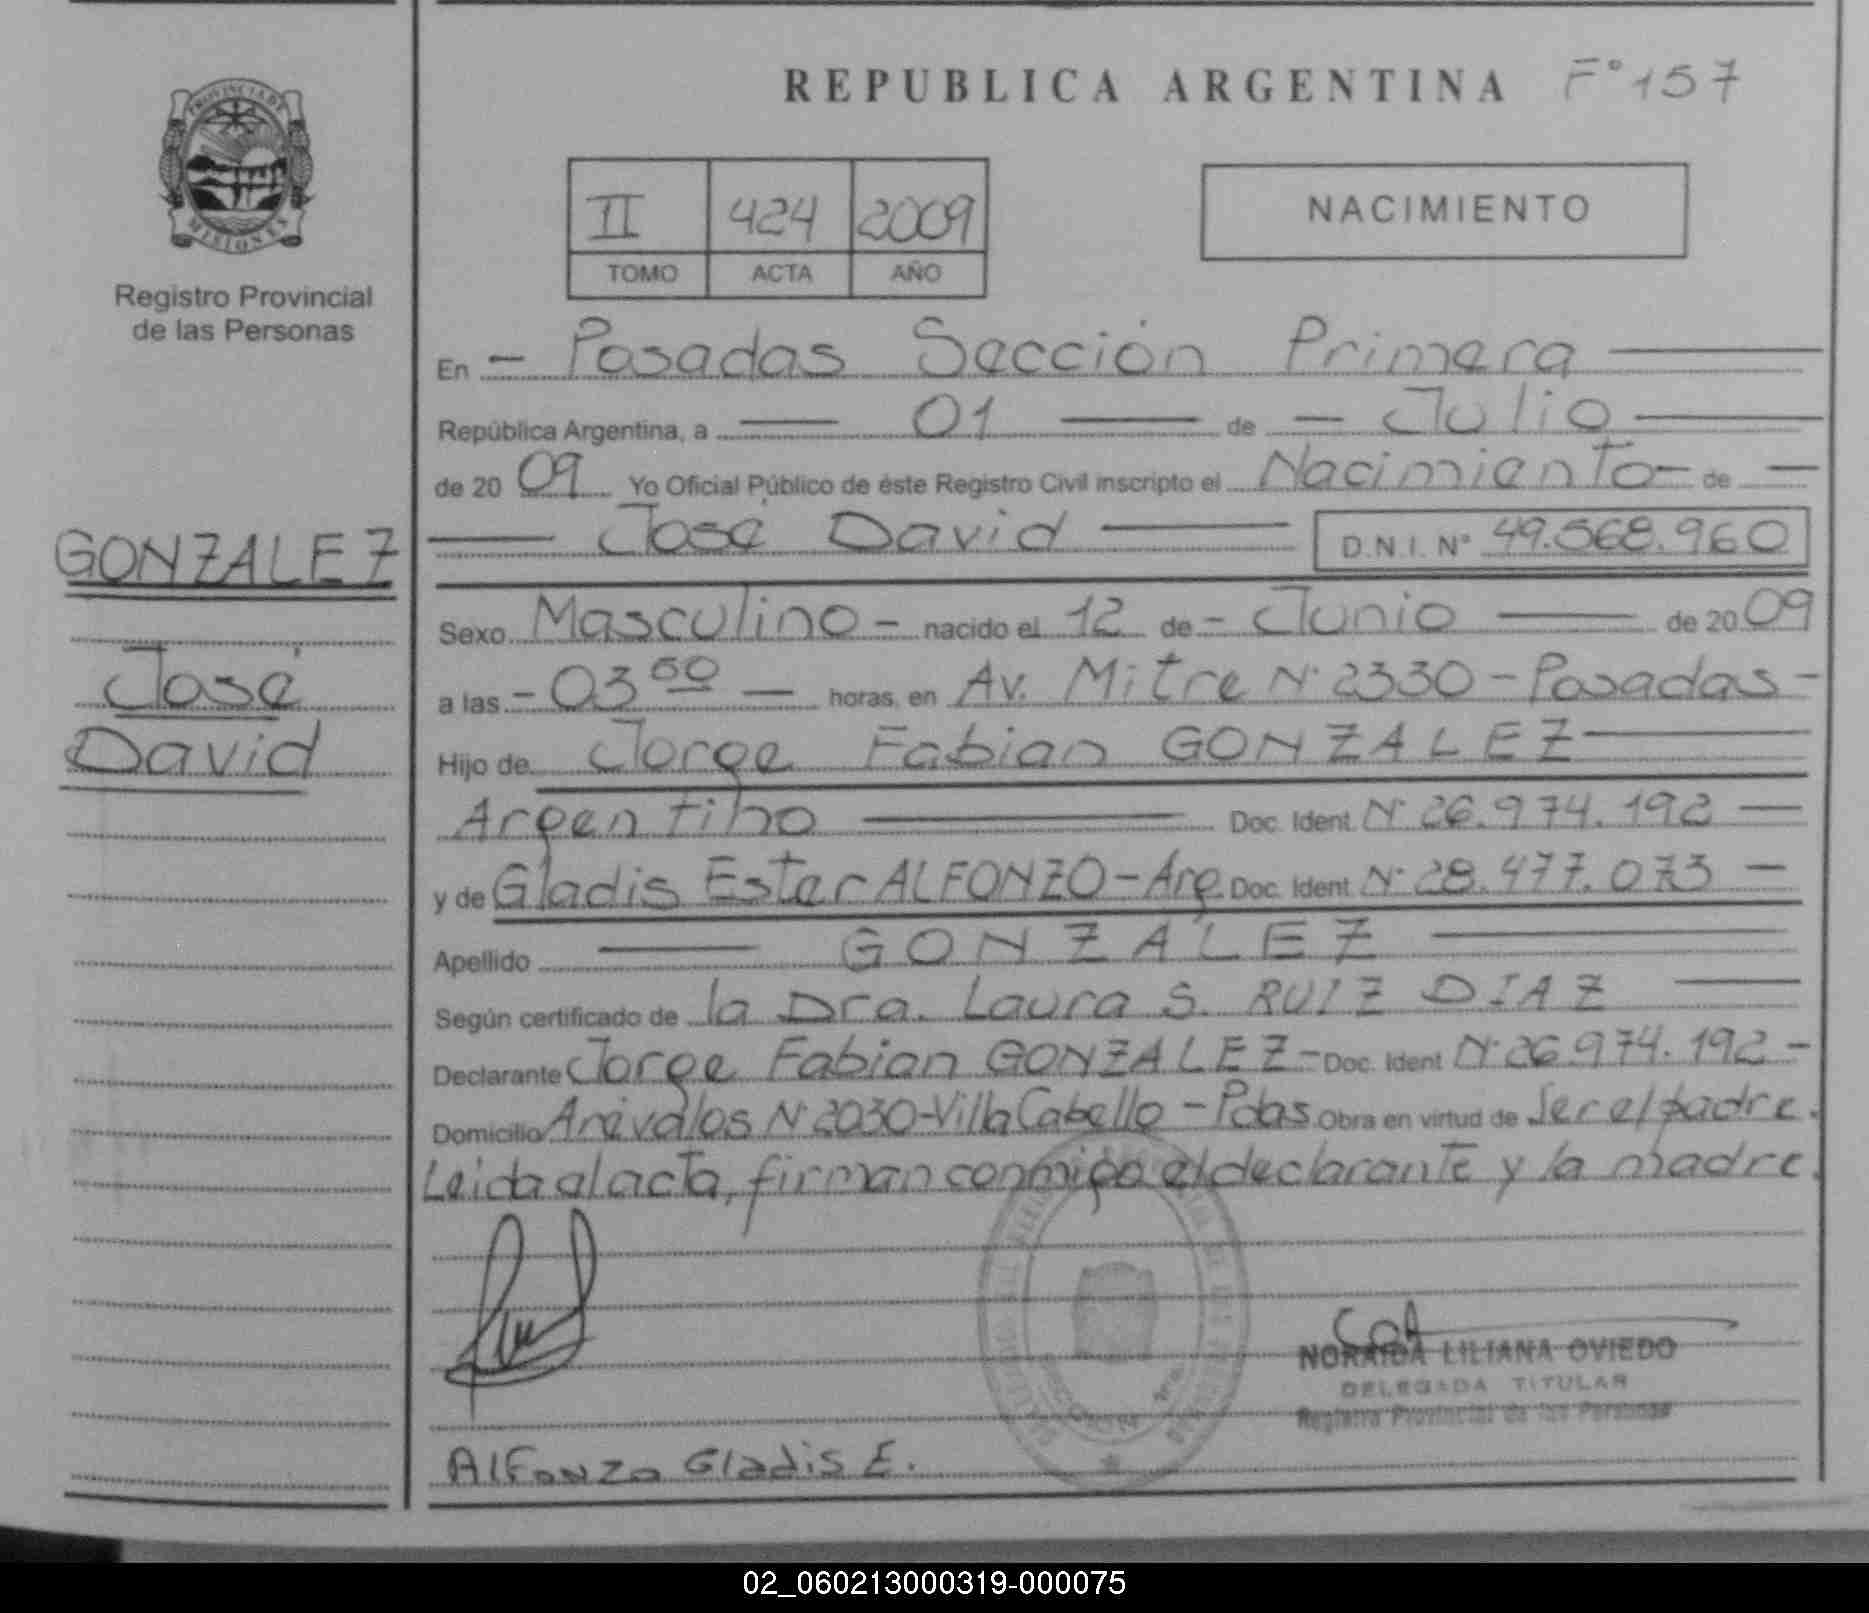 REPUBLICA ARGENTINA F° 157
PROVINCIA DE
MISIONES
Registro Provincial
de las Personas
II 424 2009
TOMO ACTA AÑO
NACIMIENTO
En - Posadas Sección Primera
República Argentina, a 01 de - Julio
de 20 09 Yo Oficial Público de éste Registro Civil inscripto el Nacimiento - de -
José David D.N.I. N° 49.568.960
GONZALEZ
José
David
Sexo Masculino - nacido el 12 de - Junio de 20 09
a las - 03 50 - horas, en Av. Mitre N° 2330 - Posadas -
Hijo de Jorge Fabian GONZALEZ
Argentino Doc. Ident. N° 26.974.192 -
y de Gladis Ester ALFONZO - Arg. Doc. Ident. N° 28.477.073 -
Apellido GONZALEZ
Según certificado de la Dra. Laura S. RUIZ DIAZ
Declarante Jorge Fabian GONZALEZ - Doc. Ident N° 26.974.192 -
Domicilio Arévalos N° 2030 - Villa Cabello - Pdas. Obra en virtud de Ser el padre.
Leida al acta, firman conmigo el declarante y la madre.
NORAIDA LILIANA OVIEDO
DELEGADA TITULAR
Registro Provincial de las Personas
Alfonzo Gladis E.
02_060213000319-000075